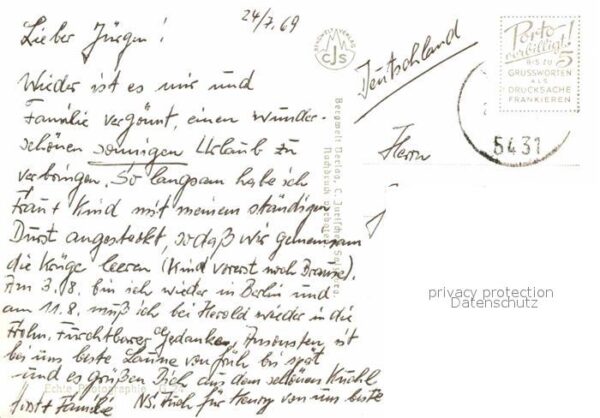 24/7.69
Lieber Jürgen!
Wieder ist es mir und
Familie vergönnt, einen wunder-
schönen sonnigen Urlaub zu
verbringen. So langsam habe ich
Frau + Kind mit meinem ständigen
Durst angesteckt, sodaß wir gemeinsam
die Krüge leeren (Kind vorerst noch Brause).
Am 3.8. bin ich wieder in Berlin und
am 11.8. muß ich bei Herold wieder in die
Frohn. Furchtbarer Gedanke. Ansonsten ist
bei uns beste Laune von früh bis spät
und es grüßen Dich aus dem schönen Kuchl
Horst + Familie
NS. Auch für Henry von uns beste
Echte Photographie
BERGWELT VERLAG
CJS
Bergwelt Verlag C. Jurischek
Nachdruck verboten
Deutschland
Herrn
Porto
verbilligt!
BIS ZU 5
GRUSSWORTEN
ALS
DRUCKSACHE
FRANKIEREN
5431
privacy protection
Datenschutz